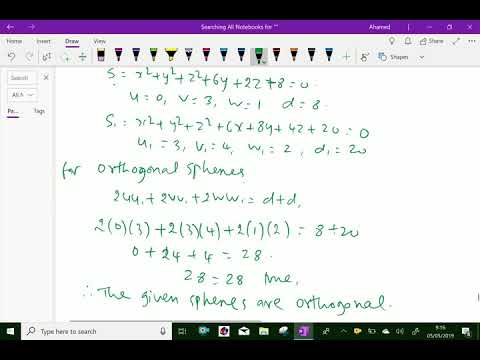 Searching All Notebooks for ""
Ahamed
File
Home
Insert
Draw
View
Searc
All N
Pa...
S: x²+y²+z²+6y+2z+8=0
u=0, v=3, w=1 d=8
S₁=x²+y²+z²+6x+8y+4z+20=0
u₁=3, v₁=4, w₁=2, d₁=20
for orthogonal spheres
2uu₁+2vv₁+2ww₁=d+d₁
2(0)(3)+2(3)(4)+2(1)(2)=8+20
0+24+4=28
28=28 true,
∴ The given spheres are orthogonal.
Type here to search
9:16
05/05/2019